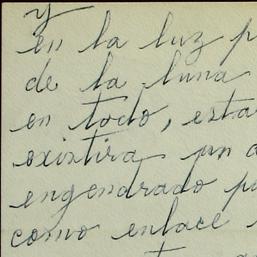 y
en la luz p
de la luna
en todo, esta
existira un a
engendrado po
como enlace